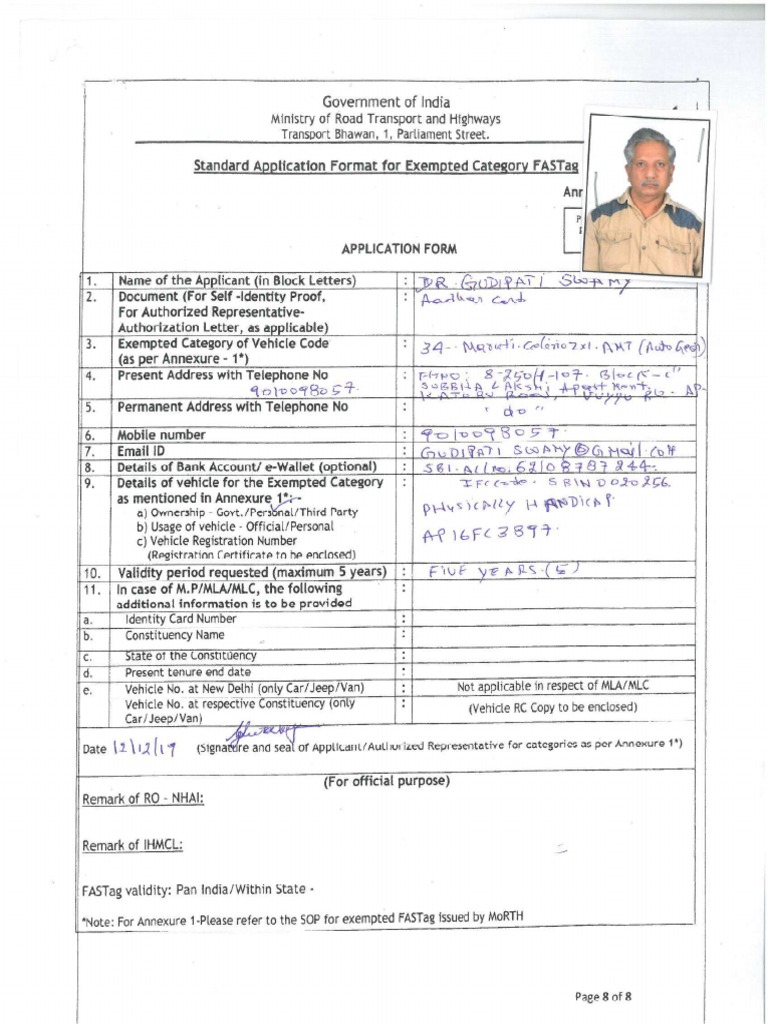 Government of India
Ministry of Road Transport and Highways
Transport Bhawan, 1, Parliament Street.
Standard Application Format for Exempted Category FASTag
Ann
APPLICATION FORM
1. Name of the Applicant (in Block Letters) : DR. GUDIPATI SWAMY
2. Document (For Self -Identity Proof, : Aadhar Card
For Authorized Representative-
Authorization Letter, as applicable)
3. Exempted Category of Vehicle Code : 34-. Maruti. Celerio Zxi. AMT (Auto Gear)
(as per Annexure - 1*)
4. Present Address with Telephone No : 8-250/1-107. Block-C"
9010098057. SUBBHA LAKSHI Apartment.
Road, AP-
5. Permanent Address with Telephone No : " do "
6. Mobile number : 9010098057.
7. Email ID : GUDIPATI SWAMY@GMail.com
8. Details of Bank Account/ e-Wallet (optional) : SBI. Ac/no. 62108787244.
9. Details of vehicle for the Exempted Category : IFC Code. SBIN0020256
as mentioned in Annexure 1*:-
a) Ownership - Govt./Personal/Third Party PHYSICALLY HANDICAP.
b) Usage of vehicle - Official/Personal
c) Vehicle Registration Number AP16FC3897.
(Registration Certificate to be enclosed)
10. Validity period requested (maximum 5 years) : FIVE YEARS.(5)
11. In case of M.P/MLA/MLC, the following :
additional information is to be provided
a. Identity Card Number :
b. Constituency Name :
c. State of the Constituency :
d. Present tenure end date :
e. Vehicle No. at New Delhi (only Car/Jeep/Van) : Not applicable in respect of MLA/MLC
Vehicle No. at respective Constituency (only : (Vehicle RC Copy to be enclosed)
Car/Jeep/Van)
Date 12/12/19 (Signature and seal of Applicant/Authorized Representative for categories as per Annexure 1*)
(For official purpose)
Remark of RO - NHAI:
Remark of IHMCL:
FASTag validity: Pan India/Within State -
*Note: For Annexure 1-Please refer to the SOP for exempted FASTag issued by MoRTH
Page 8 of 8